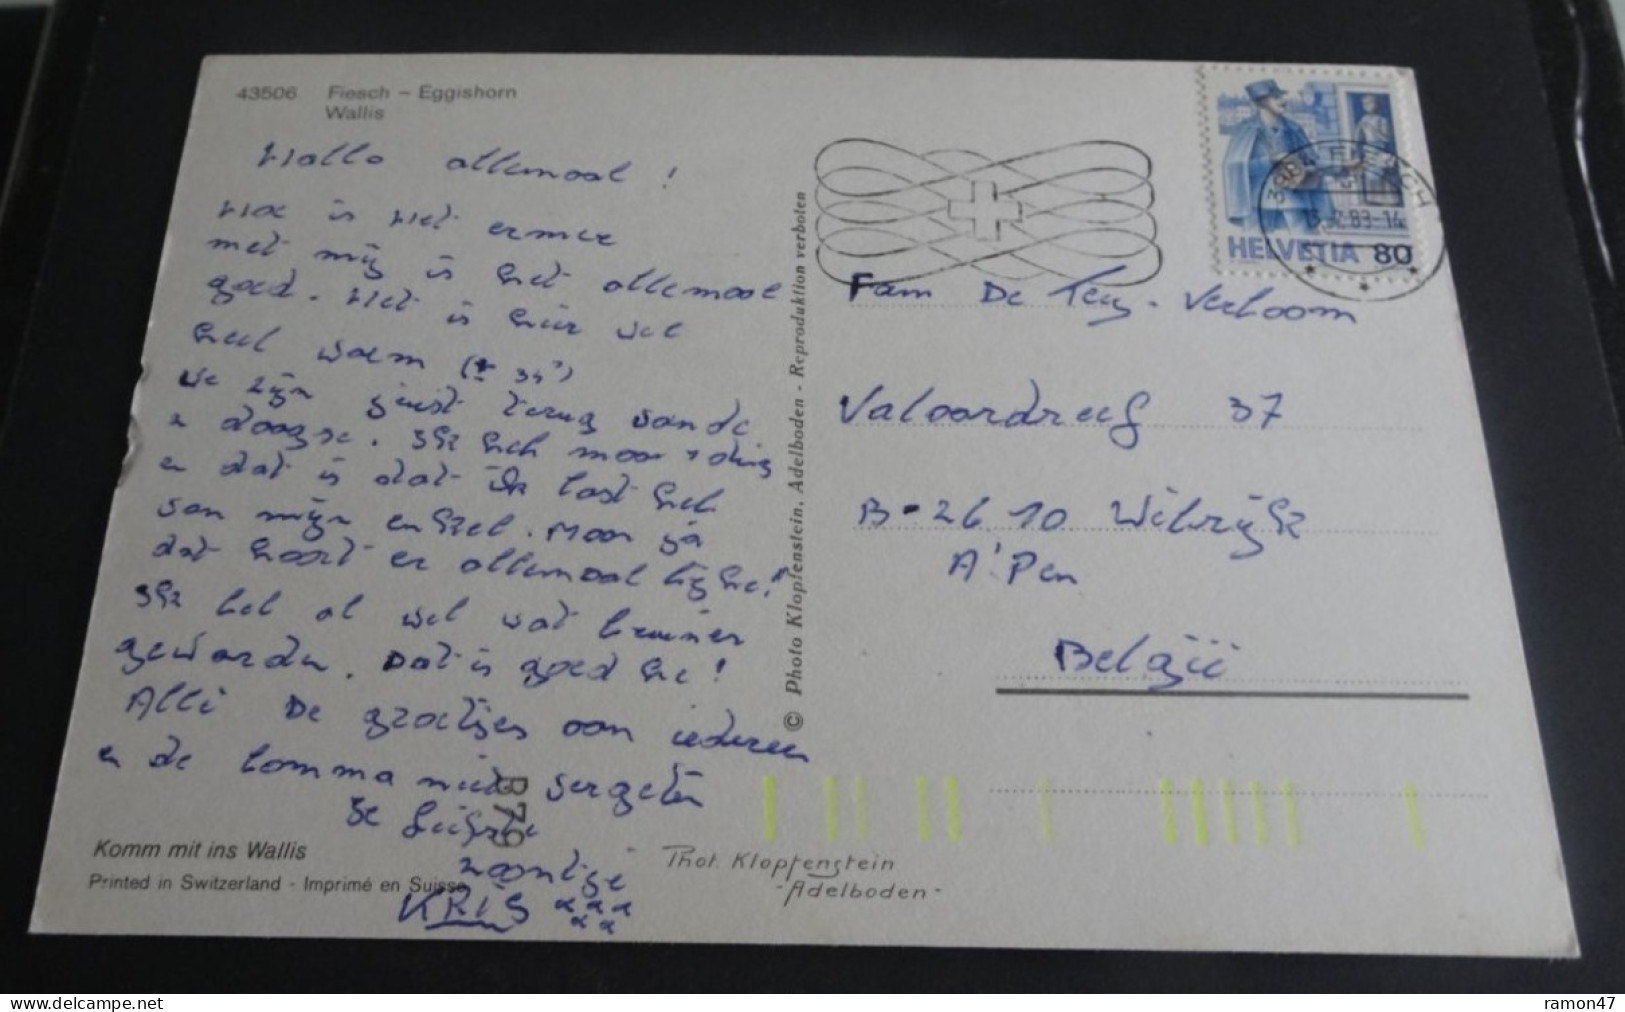 43506 Fiesch – Eggishorn
Wallis
Hallo allemaal !
Hoe is het ermee
met mij is het allemaal
goed. Het is hier wel
heel warm (± 34°)
we zijn juist terug van de
2 daagse. Ik heb maar 1 ding
en dat is dat ik last heb
van mijn enkel. Maar ja
dat hoort er allemaal bij he!
Ik ben al wel wat bruiner
geworden. Dat is goed he!
Allé De groetjes aan iedereen
en de bomma niet vergeten
Je liefste
zoontje
KRIS xxx
xx
B79
Komm mit ins Wallis
Printed in Switzerland - Imprimé en Suisse
© Photo Klopfenstein, Adelboden - Reproduktion verboten
HELVETIA 80
FIESCH
83-14
Fam De - Verloom
Valaardreef 37
B-2610 Wilrijk
A'Pen
België
Phot. Klopfenstein
-Adelboden-
www.delcampe.net
ramon47